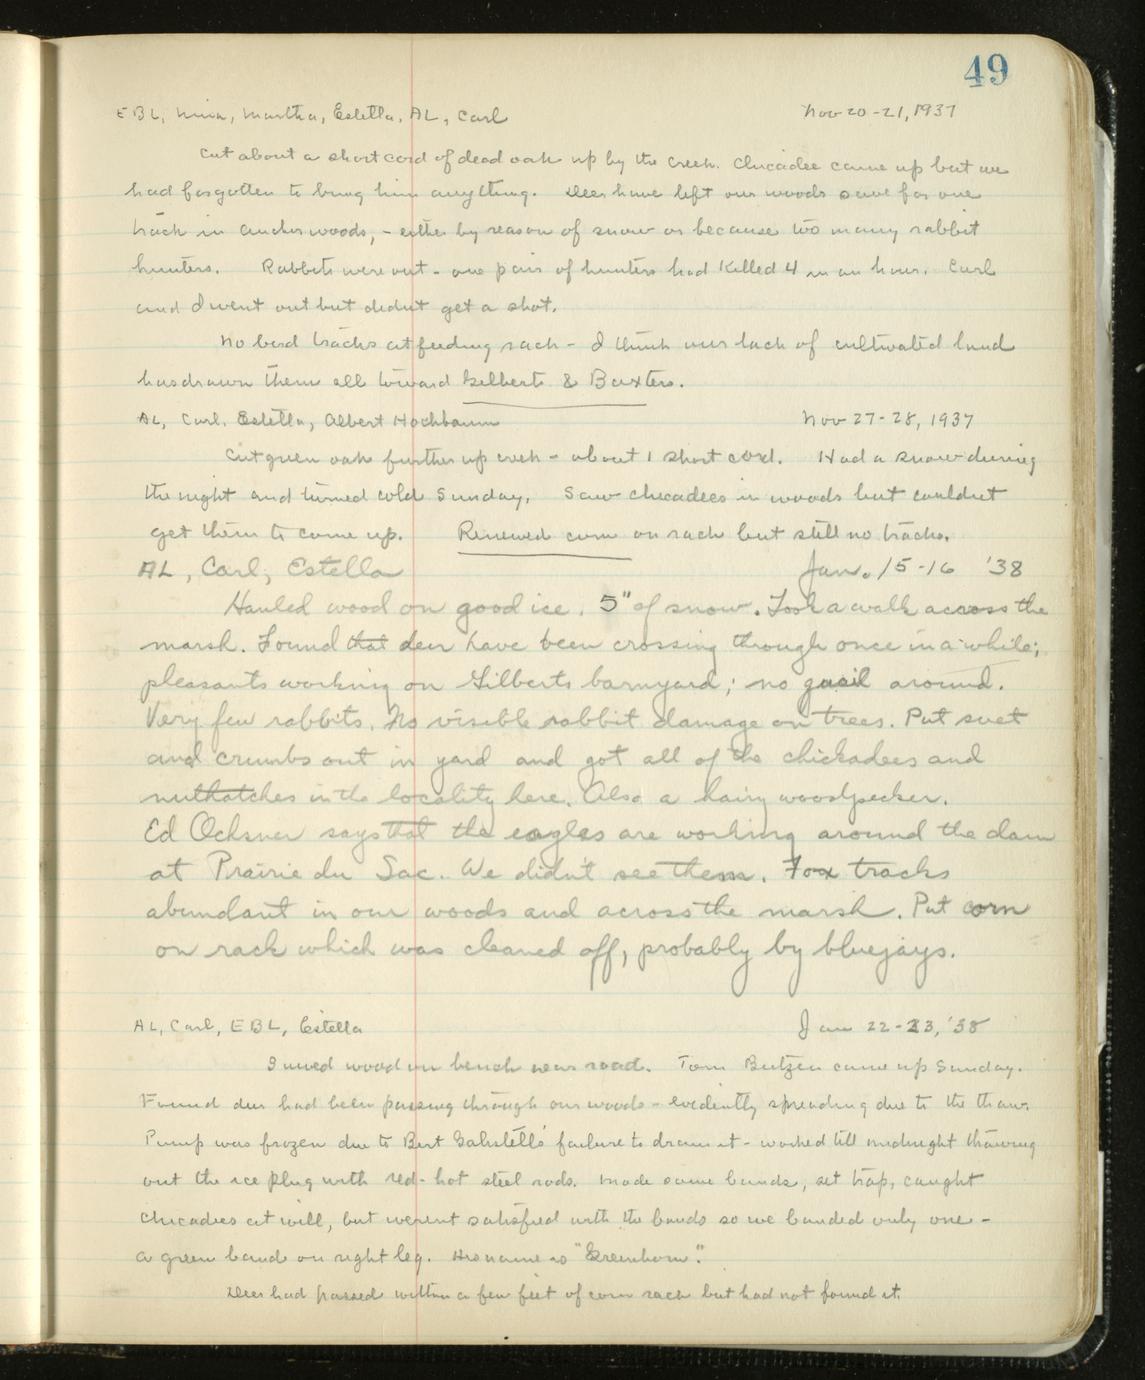 49
EBL, Nina, Martha, Estella, AL, Carl Nov 20-21, 1937
Cut about a short cord of dead oak up by the creek. Chicadee came up but we
had forgotten to bring him anything. Deer have left our woods save for one
track in anchor woods, - either by reason of snow or because too many rabbit
hunters. Rabbits were out - one pair of hunters had killed 4 in an hour. Carl
and I went out but didnt get a shot.
No bird tracks at feeding rack - I think our lack of cultivated land
has drawn them all toward Gilberts & Baxters.
AL, Carl, Estella, Albert Hochbaum Nov 27-28, 1937
Cut green oak further up creek - about 1 short cord. Had a snow during
the night and turned cold Sunday. Saw chicadees in woods but couldnt
get them to come up. Renewed corn on rack but still no tracks.
AL, Carl, Estella Jan. 15-16 '38
Hauled wood on good ice. 5" of snow. Took a walk across the
marsh. Found that deer have been crossing through once in a while;
pleasants working on Gilberts barnyard; no quail around.
Very few rabbits. No visible rabbit damage on trees. Put suet
and crumbs out in yard and got all of the chickadees and
nuthatches in the locality here. Also a hairy woodpecker.
Ed Ochsner says that the eagles are working around the dam
at Prairie du Sac. We didn't see them. Fox tracks
abundant in our woods and across the marsh. Put corn
on rack which was cleaned off, probably by bluejays.
AL, Carl, EBL, Estella Jan 22-23, '38
Sawed wood on bench near road. Tom Butzen came up Sunday.
Found deer had been passing through our woods - evidently spreading due to the thaw.
Pump was frozen due to Bert failure to drain it - worked till midnight thawing
out the ice plug with red-hot steel rods. Made some bands, set trap, caught
chicadees at will, but werent satisfied with the bands so we banded only one -
a green band on right leg. His name is "Greenhorn."
Deer had passed within a few feet of corn rack but had not found it.